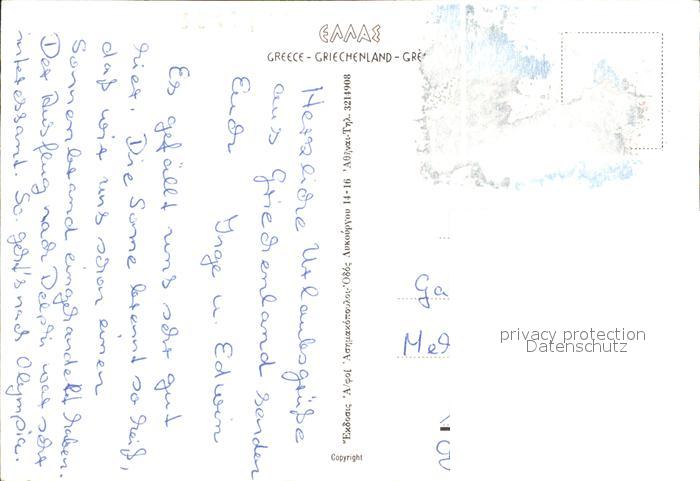 ΕΛΛΑΣ
GREECE - GRIECHENLAND - GRÈ
Herzliche Urlaubsgrüße
aus Griechenland senden
Euch
Inge u. Edwin
Es gefällt uns sehr gut
hier. Die Sonne brennt so heiß,
daß wir uns schon einen
Sonnenbrand eingehandelt haben.
Der Ausflug nach Delphi war sehr
interessant. So. geht's nach Olympia.
Ἔκδοσις Ἀφοί Ἀσημακόπουλοι-Ὁδὸς Λυκούργου 14-16 Ἀθῆναι-Τηλ. 3214908
Copyright
privacy protection
Datenschutz